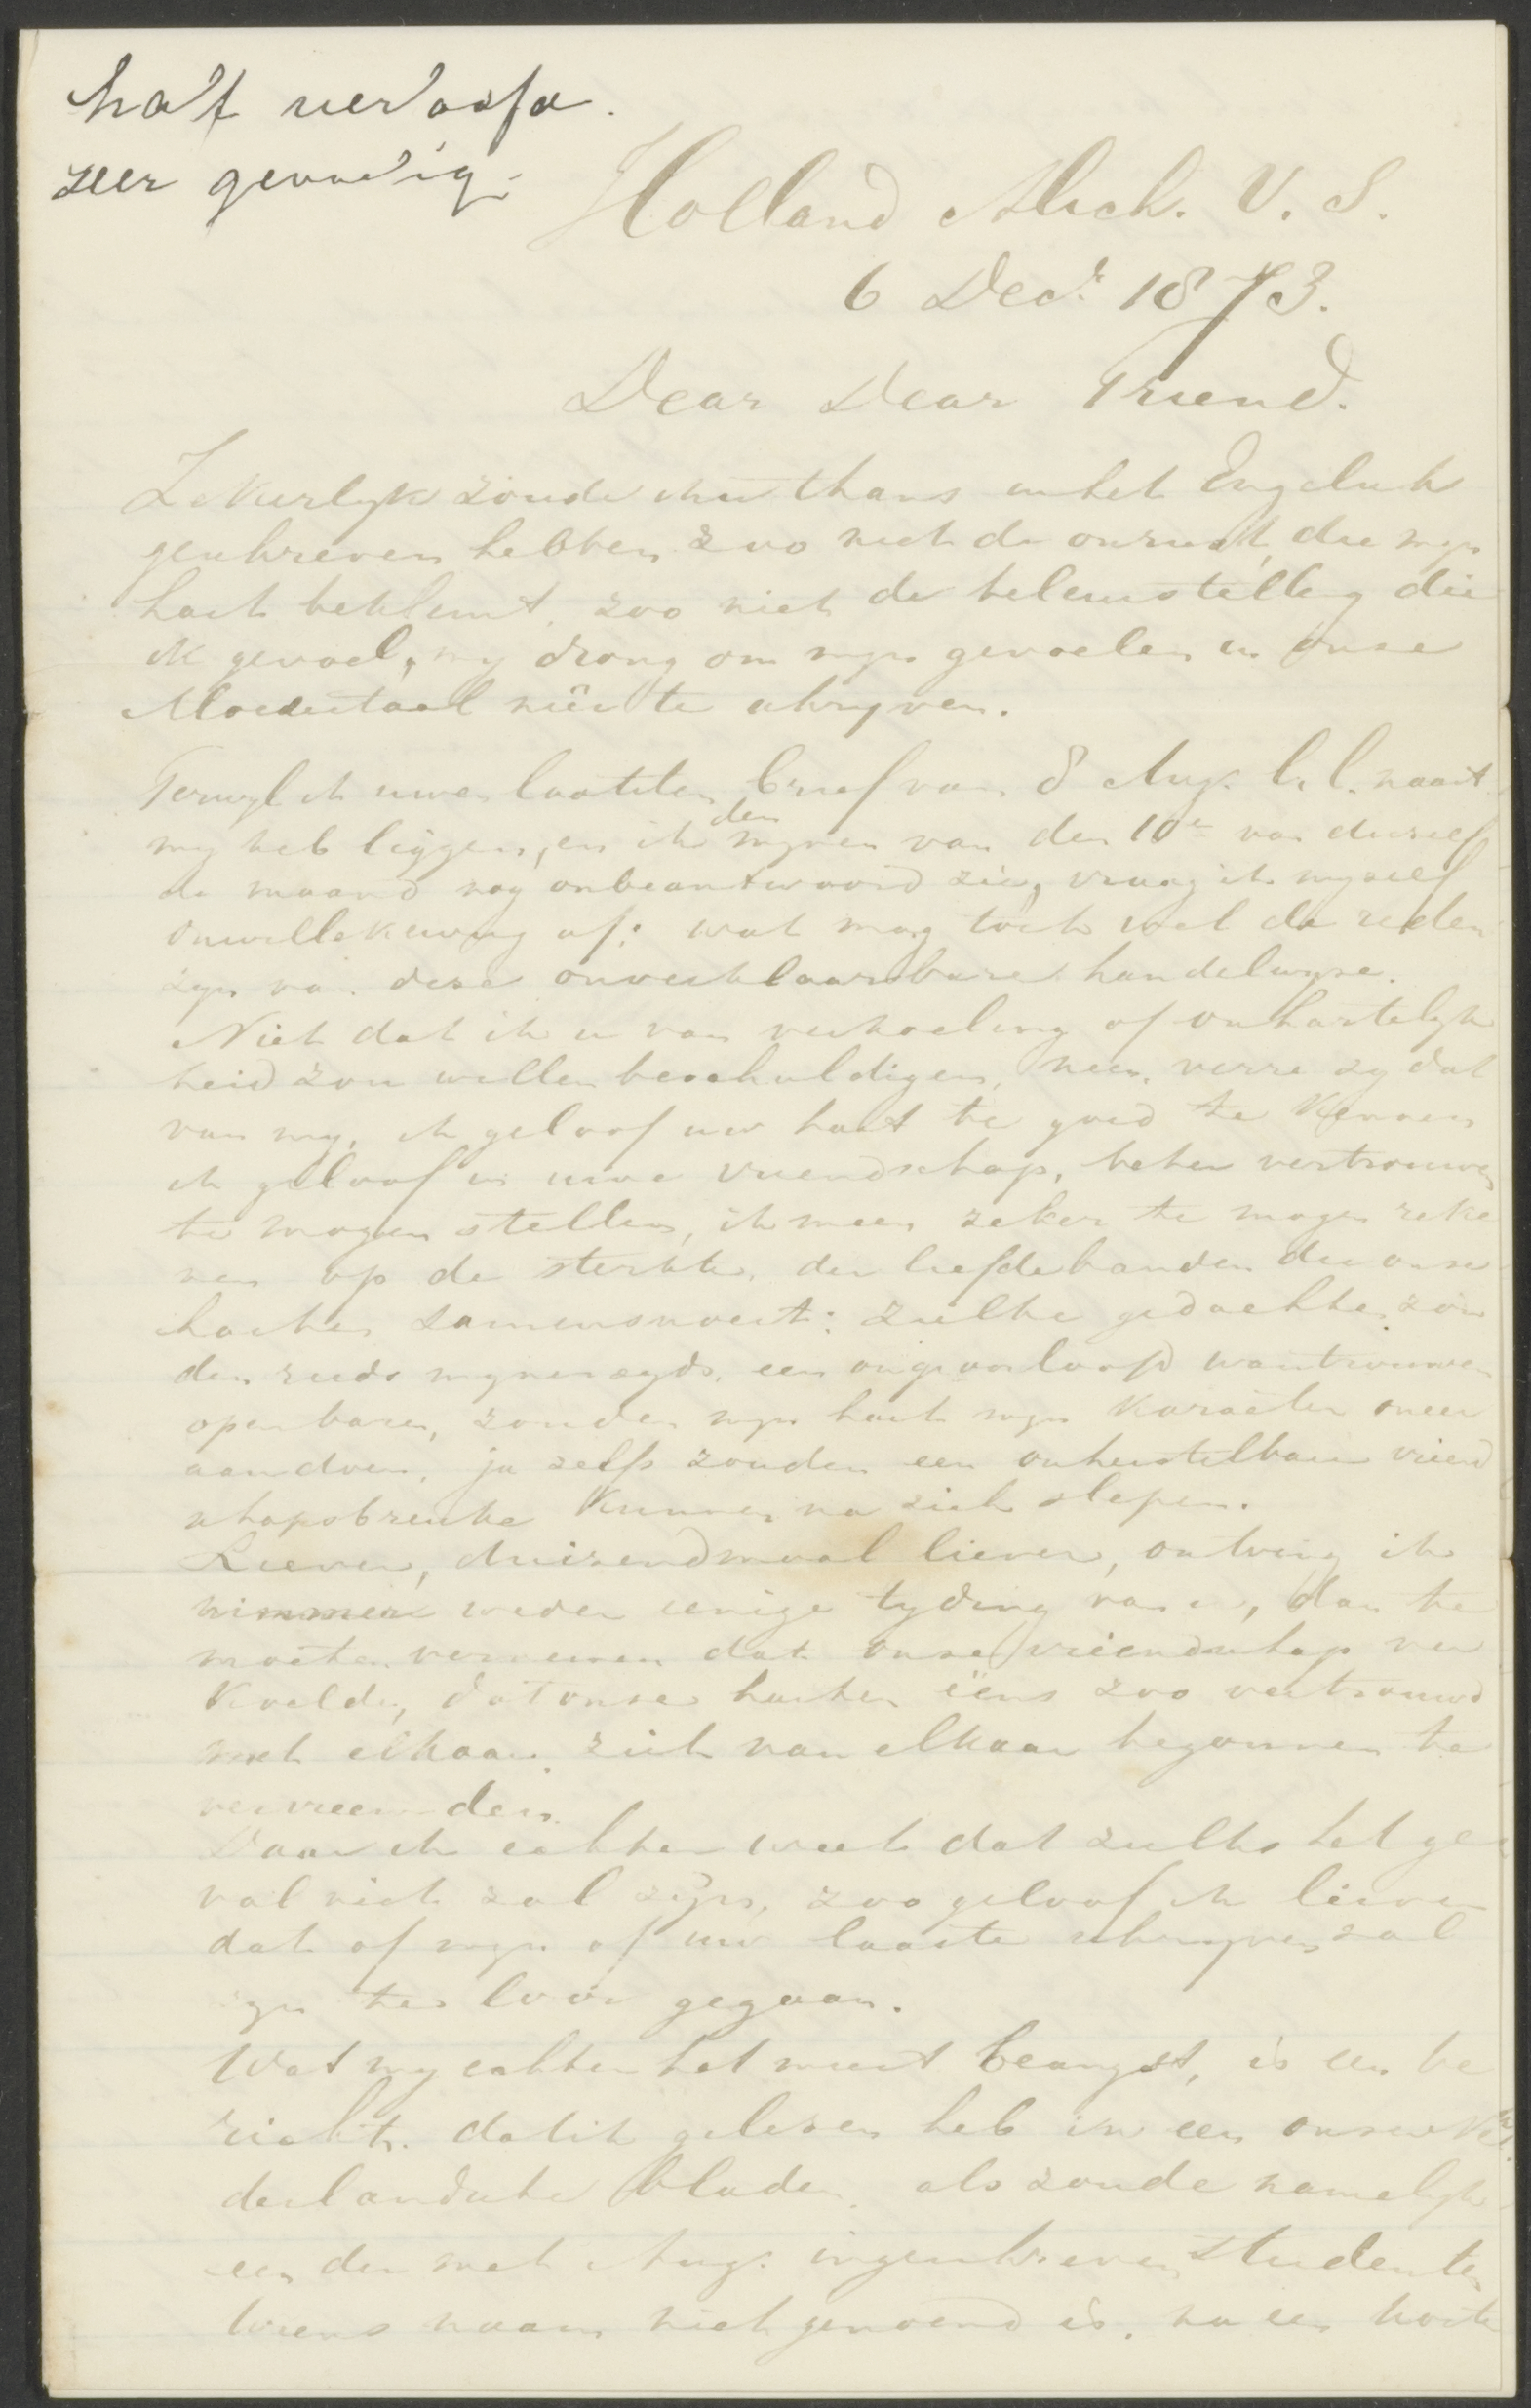 zeer
Holland Mich. V. S.
6 Dec.r 1873.
Dear Dear Friend.
Zekerlyk zoude ik u thans in het Engelsch
geschreven hebben zoo niet de onrust, die myn
hart beklemt, zoo niet de belangstelling die
ik gevoel, my drong om myn gevoelen in onze
Moedertaal neêr te schryven.
Terwyl ik uwen laatsten brief van 8 Aug. l.l. naast
my heb liggen, en ik den mynen van den 10e van dezelf
de maand nog onbeantwoord zie, vraag ik myself
onwillekeurig af: wat mag toch wel de reden
zyn van deze onverklaarbare handelwyze.
Niet dat ik u van verkoeling of onhartelyk
heid zou willen beschuldigen, neen, verre zy dat
van my, ik geloof uw hart te goed te kennen
ik geloof in uwe vriendschap, beter vertrouwen
te mogen stellen, ik meen zeker te mogen reke
nen op de sterkte der liefdebanden die onze
harten samensnoert: zulke gedachten zou
den reeds mynerzyds, een ongeoorloofd wantrouwen
openbaren, zouden myn hart myn karakter oneer
aandoen, ja zelfs zouden een onherstelbare vriend
schapsbreuke kunnen na zich slepen.
Liever, duizendmaal liever, ontving ik
nimmer weder eenige tyding van u, dan te
moeten vernemen dat onze vriendschap ver
koelde, dat onze harten ééns zoo vertrouwd
met elkaar, zich van elkaar begonnen te
vervreemden.
Daar ik echter weet dat zulks het ge
val niet zal zijn, zoo geloof ik liever
dat of myn of uw laatste schryven zal
zyn te loor gegaan.
Wat my echter het meest beangst, is een be
richt, dat ik gelezen heb in een onzer Ne
derlandsche bladen, als zoude namelyk
een der met Aug. ingeschreven studenten
wiens naam niet genoemd is, na een korte